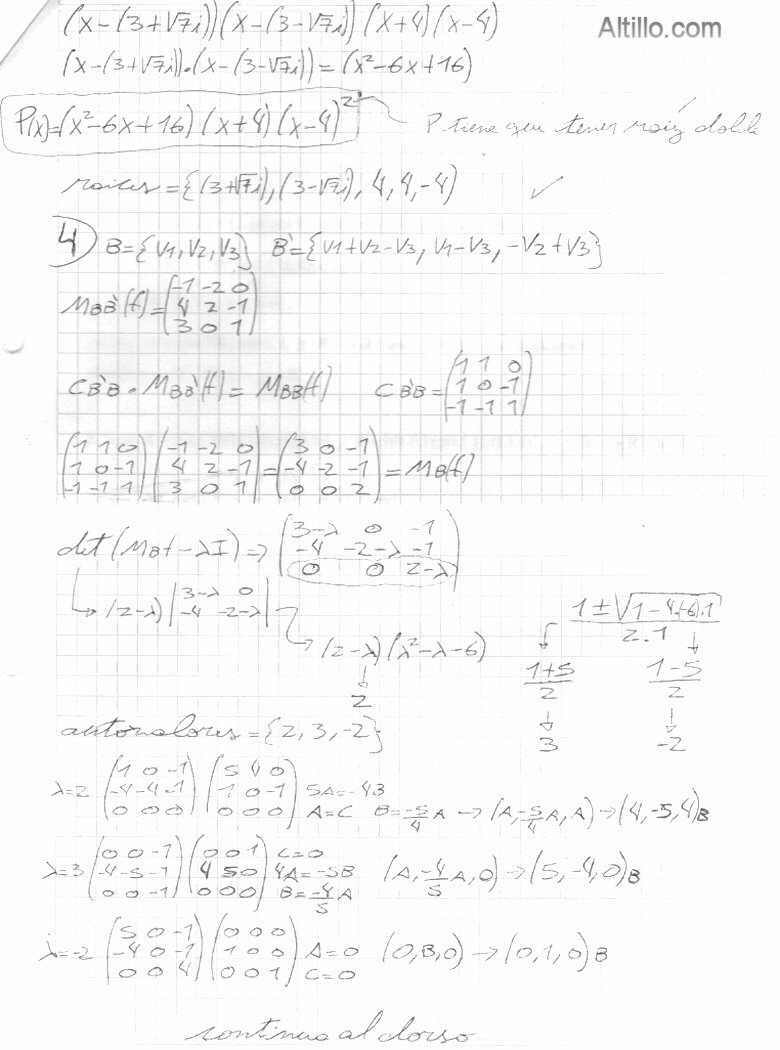 (x-(3+√7i))(x-(3-√7i))(x+4)(x-4)
Altillo.com
(x-(3+√7i))·(x-(3-√7i))=(x²-6x+16)
P(x)=(x²-6x+16)(x+4)(x-4)²
P tiene que tener raíz doble
raices={(3+√7i),(3-√7i),4,4,-4) ✓
4) B={v1,v2,v3} B'={v1+v2-v3, v1-v3, -v2+v3}
MBB'(f)=(-1 -2 0
4 2 -1
3 0 1)
CB'B·MBB'(f)=MBB(f) CB'B=(1 1 0
1 0 -1
-1 -1 1)
(1 1 0 (-1 -2 0 (3 0 -1
1 0 -1 4 2 -1 = -4 -2 -1 = MB(f)
-1 -1 1) 3 0 1) 0 0 2)
det(MBf-λI)⇒(3-λ 0 -1
-4 -2-λ -1
0 0 2-λ)
↳(2-λ)|3-λ 0
-4 -2-λ|
↳(2-λ)(λ²-λ-6)
2
1±√1-4.+6).1
2.1
1+5 1-5
2 2
3 -2
autovalores={2,3,-2}
λ=2 (1 0 -1 (5 4 0
-4 -4 -1 1 0 -1 5A=-4B
0 0 0) 0 0 0) A=C B=-5/4A → (A,-5/4A,A)→(4,-5,4)B
λ=3 (0 0 -1 (0 0 1 C=0
-4 -5 -1 4 5 0 4A=-5B (A,-4/5A,0)→(5,-4,0)B
0 0 -1) 0 0 0) B=-4/5A
λ=-2 (5 0 -1 (0 0 0
-4 0 -1 1 0 0 A=0 (0,B,0)→(0,1,0)B
0 0 4) 0 0 1) C=0
continua al dorso